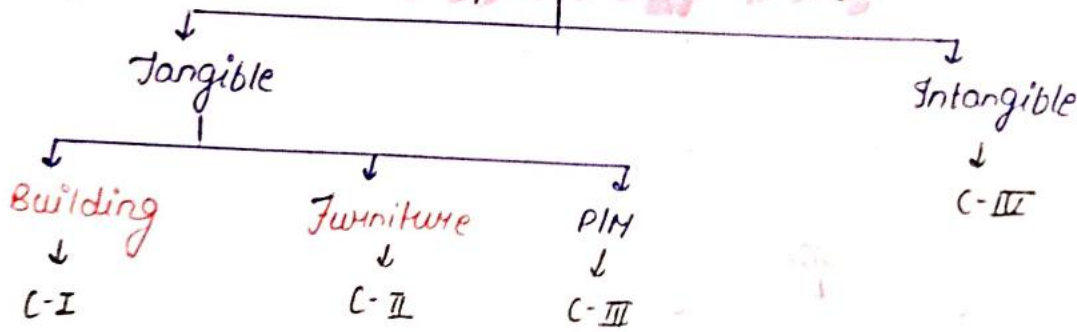 Tangible
Intangible
Building
Furniture
P/M
C-IV
C-I
C-II
C-III